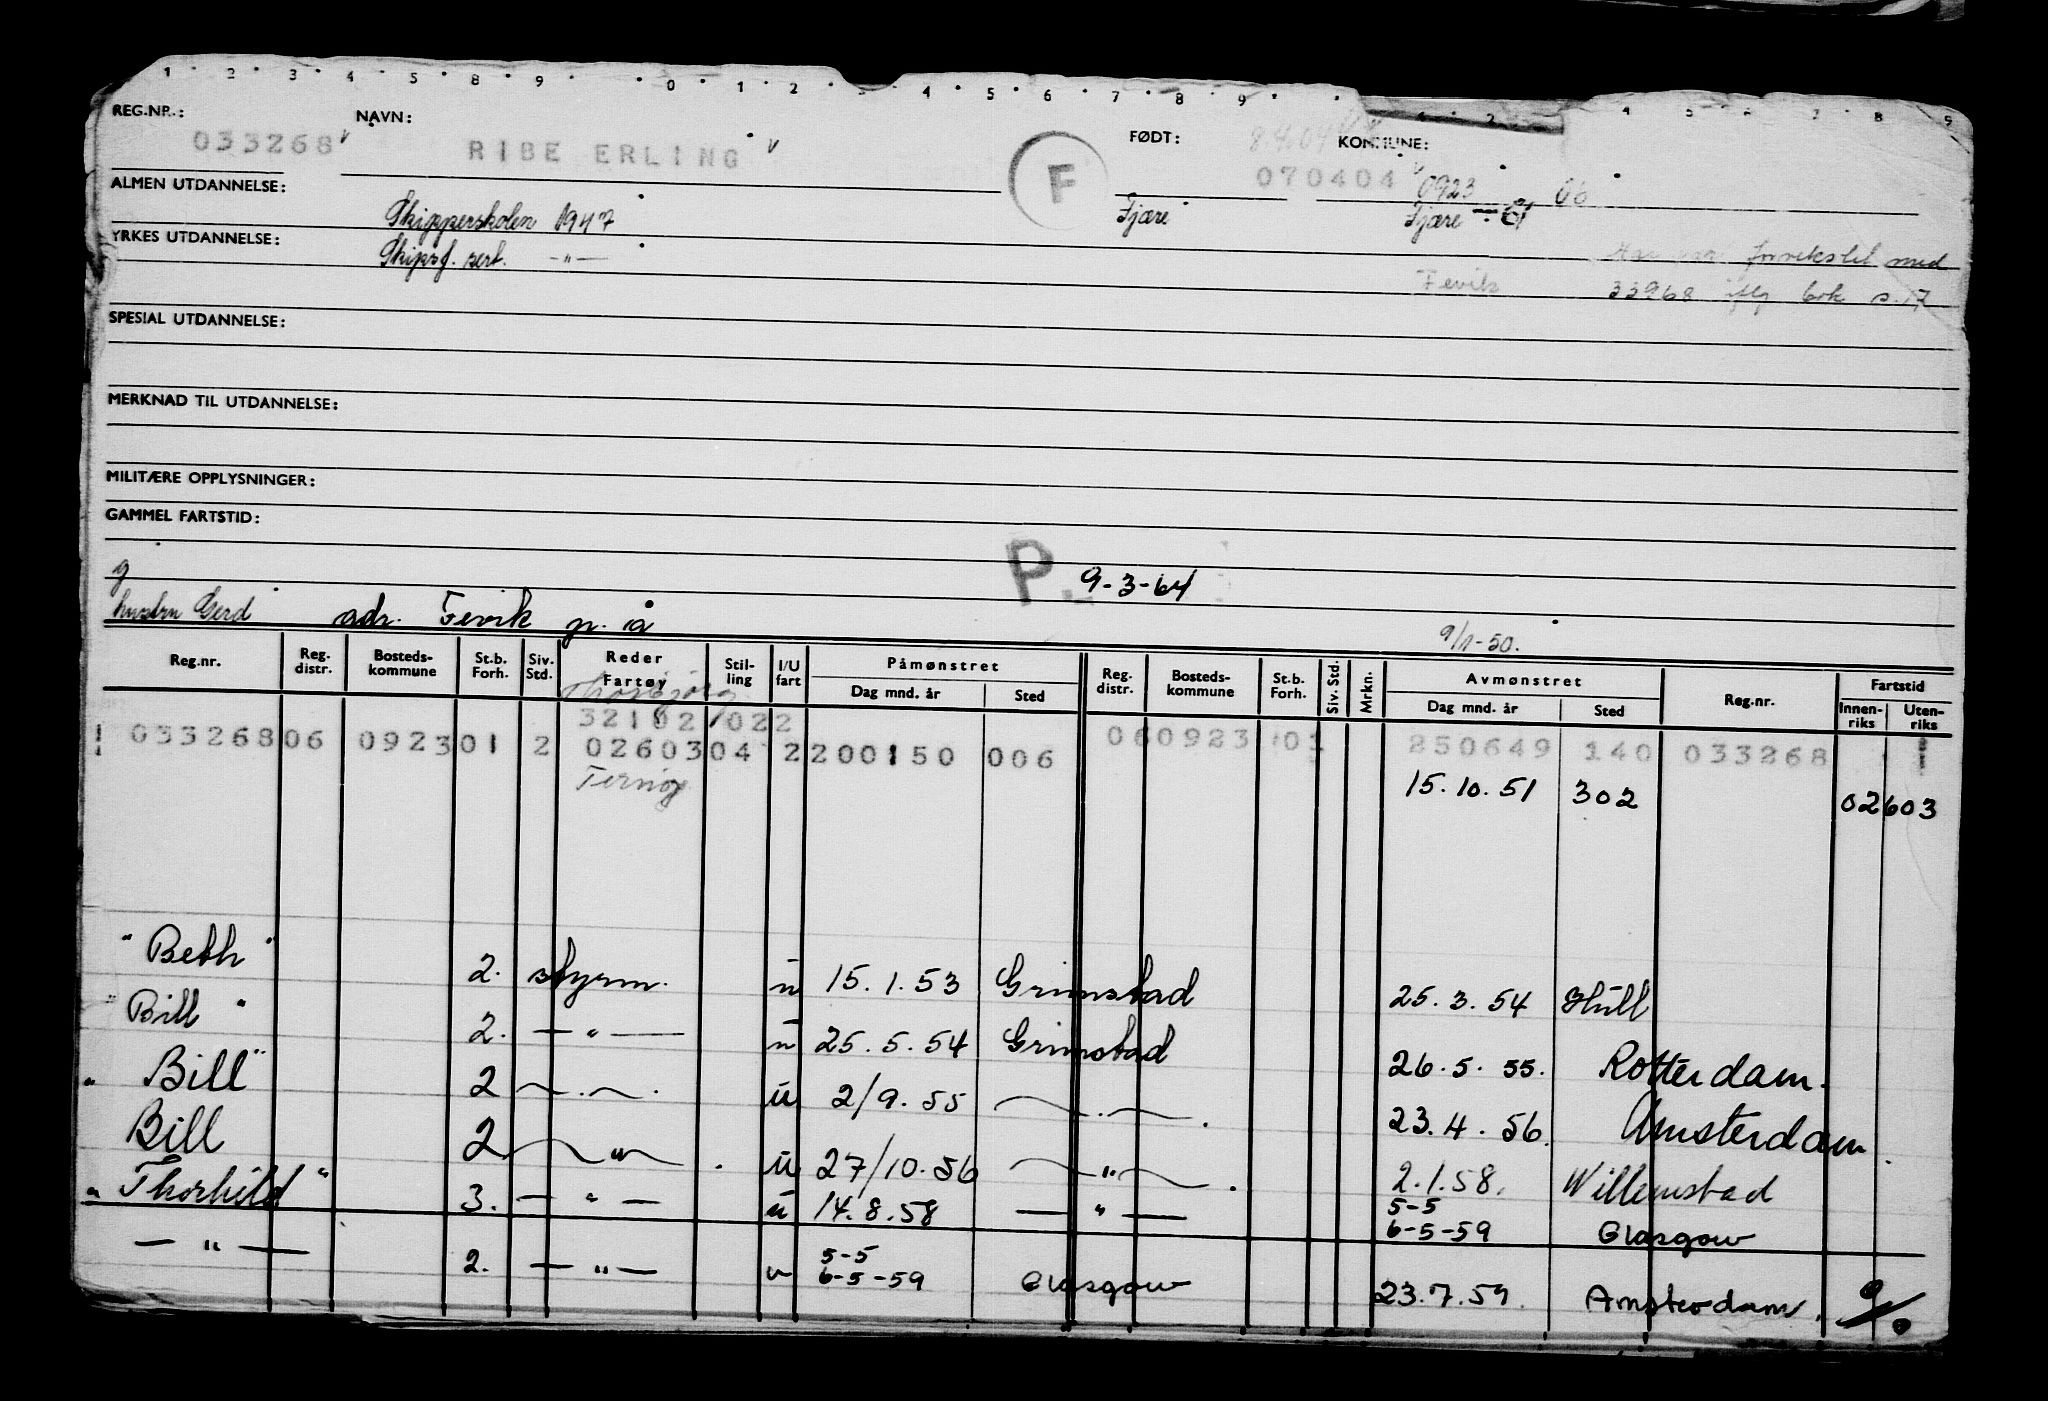 1 2 3 4 5 8 9 0 1 2 3 4 5 6 7 8 9 1 2 4 5 6 7 8 9
REG.NR.: NAVN: FØDT: 8.4.04 KOMMUNE:
033268 RIBE ERLING F 070404 0923 06
ALMEN UTDANNELSE: Skipperskolen 1947 Fjære Fjære
YRKES UTDANNELSE: Skipsf. sert. — " — forvekslet med
Fevik 33968 iflg bok s. 17
SPESIAL UTDANNELSE:
MERKNAD TIL UTDANNELSE:
MILITÆRE OPPLYSNINGER:
GAMMEL FARTSTID:
g P. 9-3-64
hustru Gerd adr. Fevik p. å 9/1-50.
Reg.nr. Reg. distr. Bosteds- kommune St.b. Forh. Siv. Std. Reder Fartøy Stil- ling I/U fart Påmønstret Dag mnd. år Sted Reg. distr. Bosteds- kommune St.b. Forh. Siv. Std. Mrkn. Avmønstret Dag mnd. år Sted Reg.nr. Fartstid Innen- riks Uten- riks
Thorbjørg
32102 022
033268 06 0923 01 2 02603 04 2 200150 006 06 0923 01 250649 140 033268
Ternøy 15.10.51 302 02603
"Beth" 2. styrm. u 15.1.53 Grimstad 25.3.54 Hull
"Bill" 2. — " — u 25.5.54 Grimstad 26.5.55. Rotterdam.
"Bill" 2 — " — u 2/9.55 — " — 23.4.56. Amsterdam.
Bill 2 — " — u 27/10.56 — " — 2.1.58. Willemstad
"Thorhild" 3. — " — u 14.8.58 — " — 5-5 6-5-59 Glasgow
— " — 2. — " — u 5-5 6-5-59 Glasgow 23.7.59. Amsterdam.